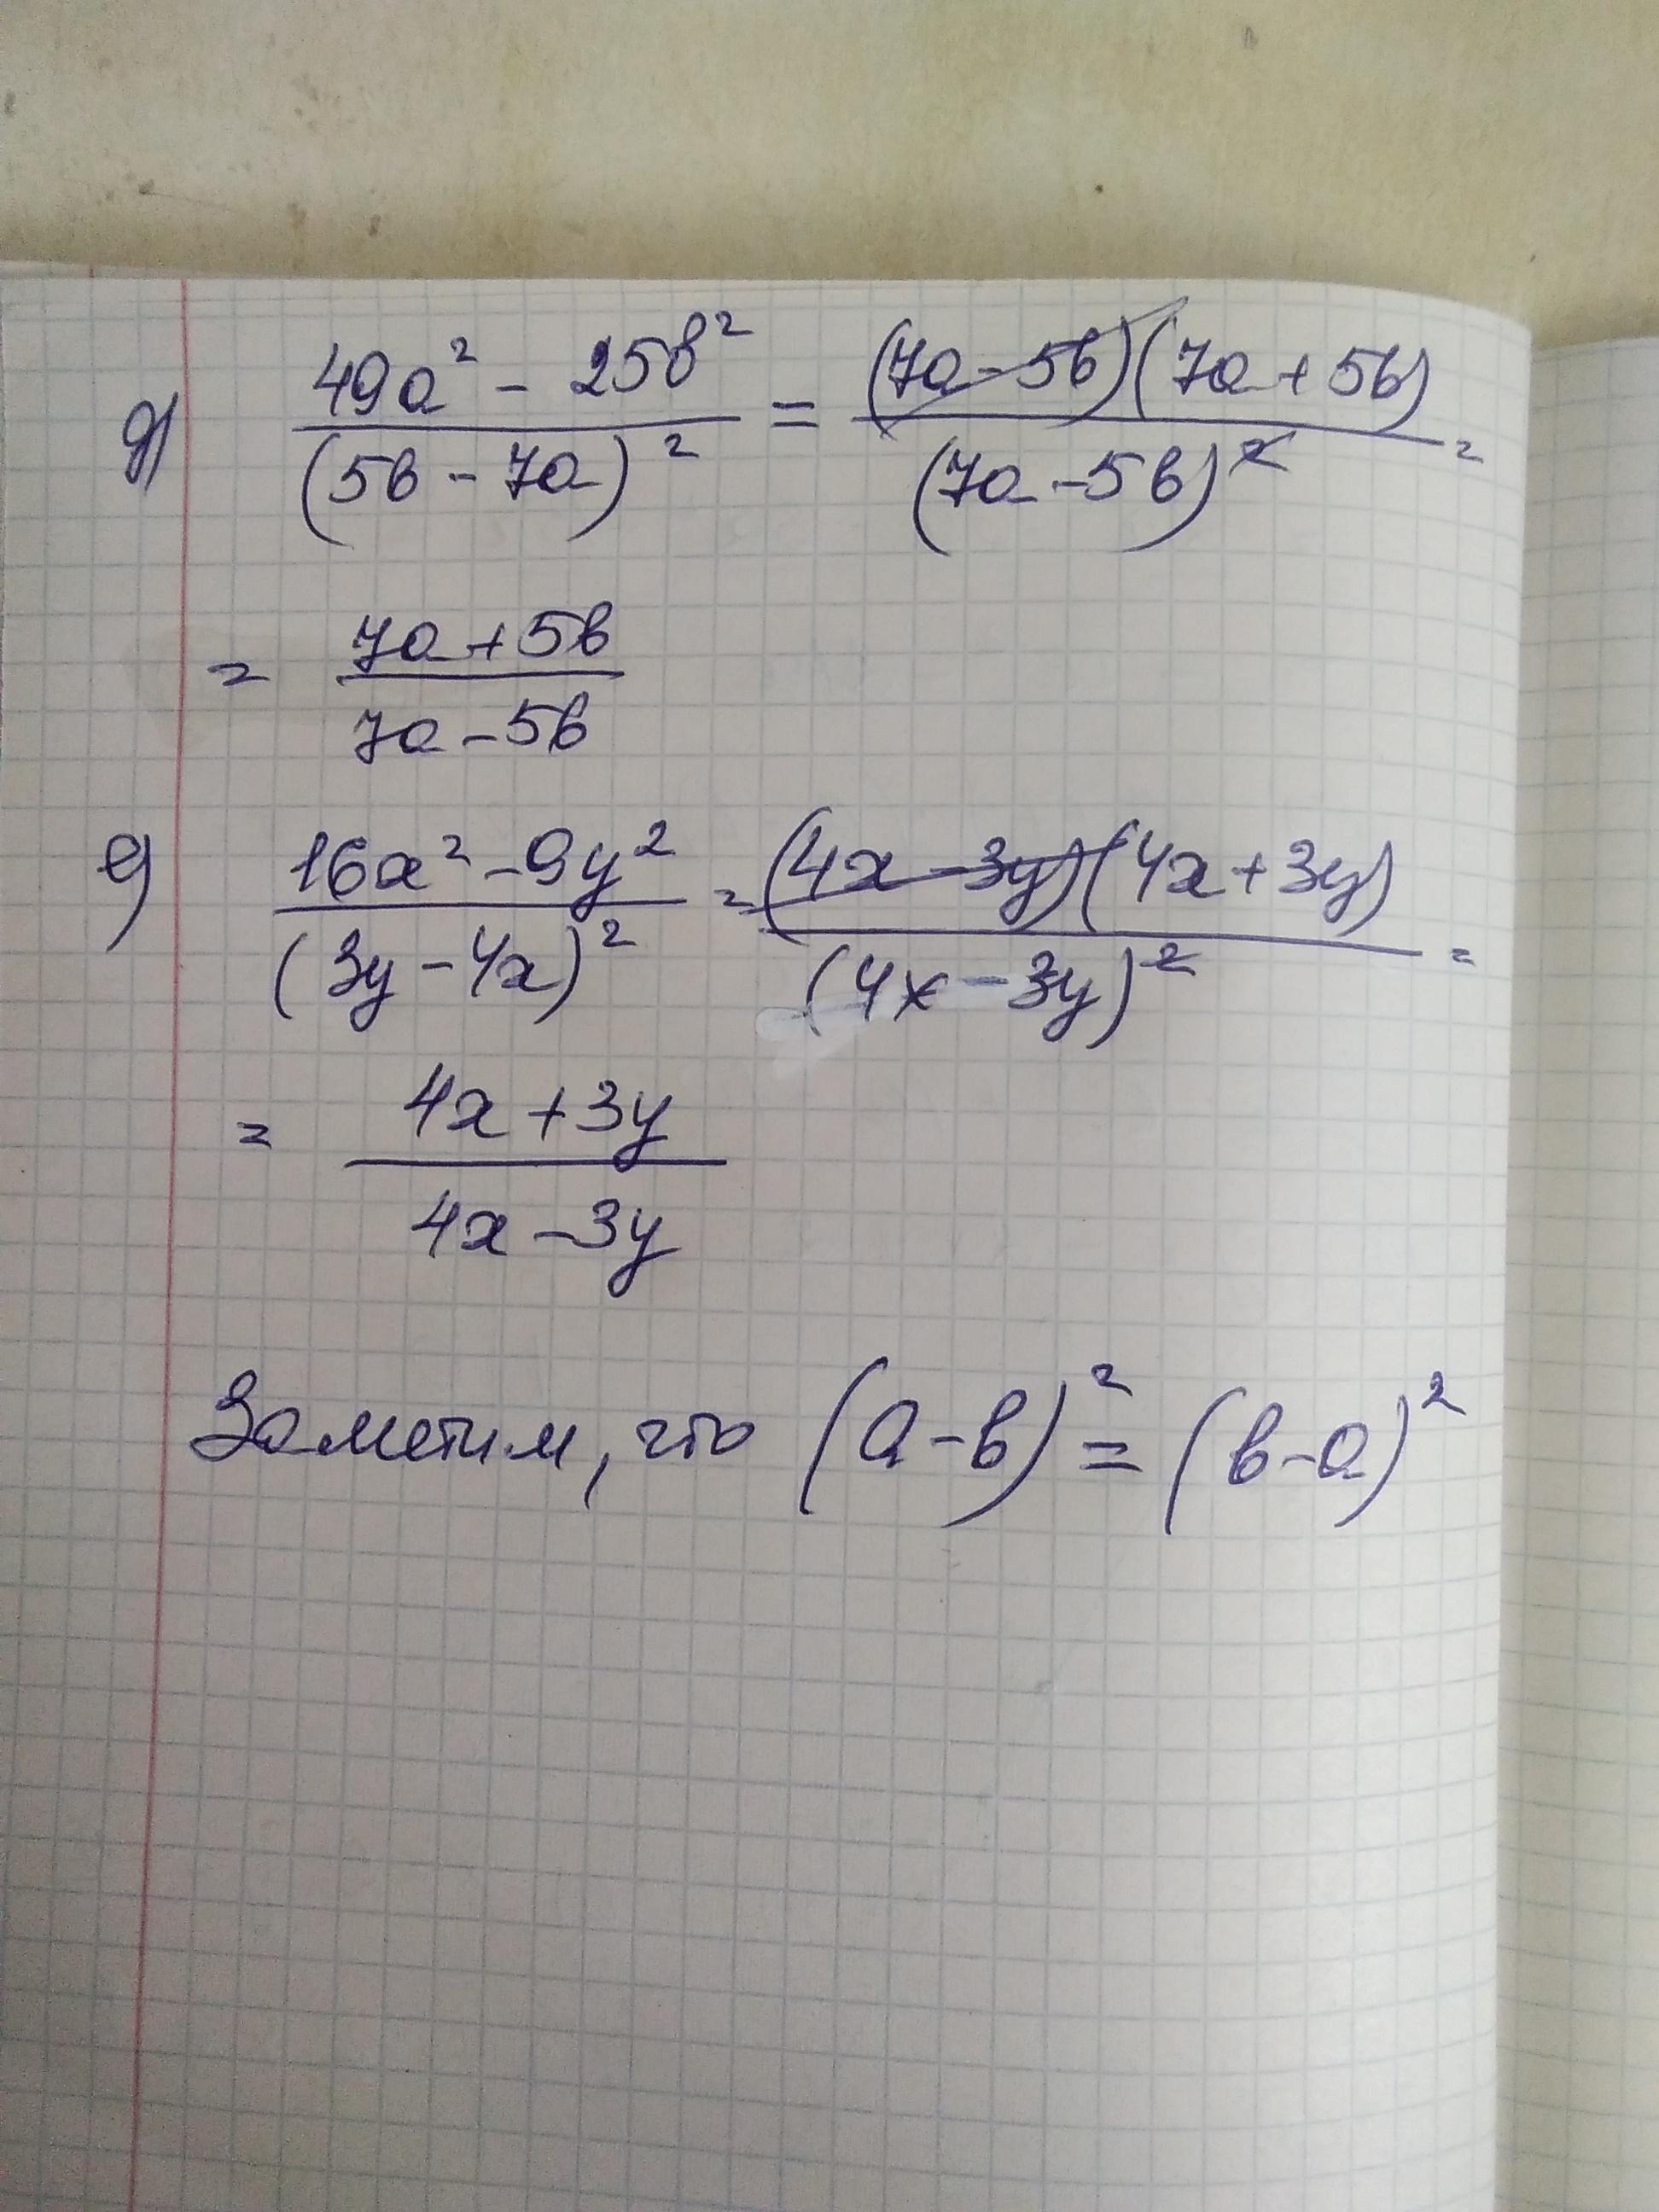 д) (49a² - 25b²)/(5b - 7a)² = (7a - 5b)(7a + 5b)/(7a - 5b)² =
= (7a + 5b)/(7a - 5b)
е) (16x² - 9y²)/(3y - 4x)² = (4x - 3y)(4x + 3y)/(4x - 3y)² =
= (4x + 3y)/(4x - 3y)
Заметим, что (a - b)² = (b - a)²